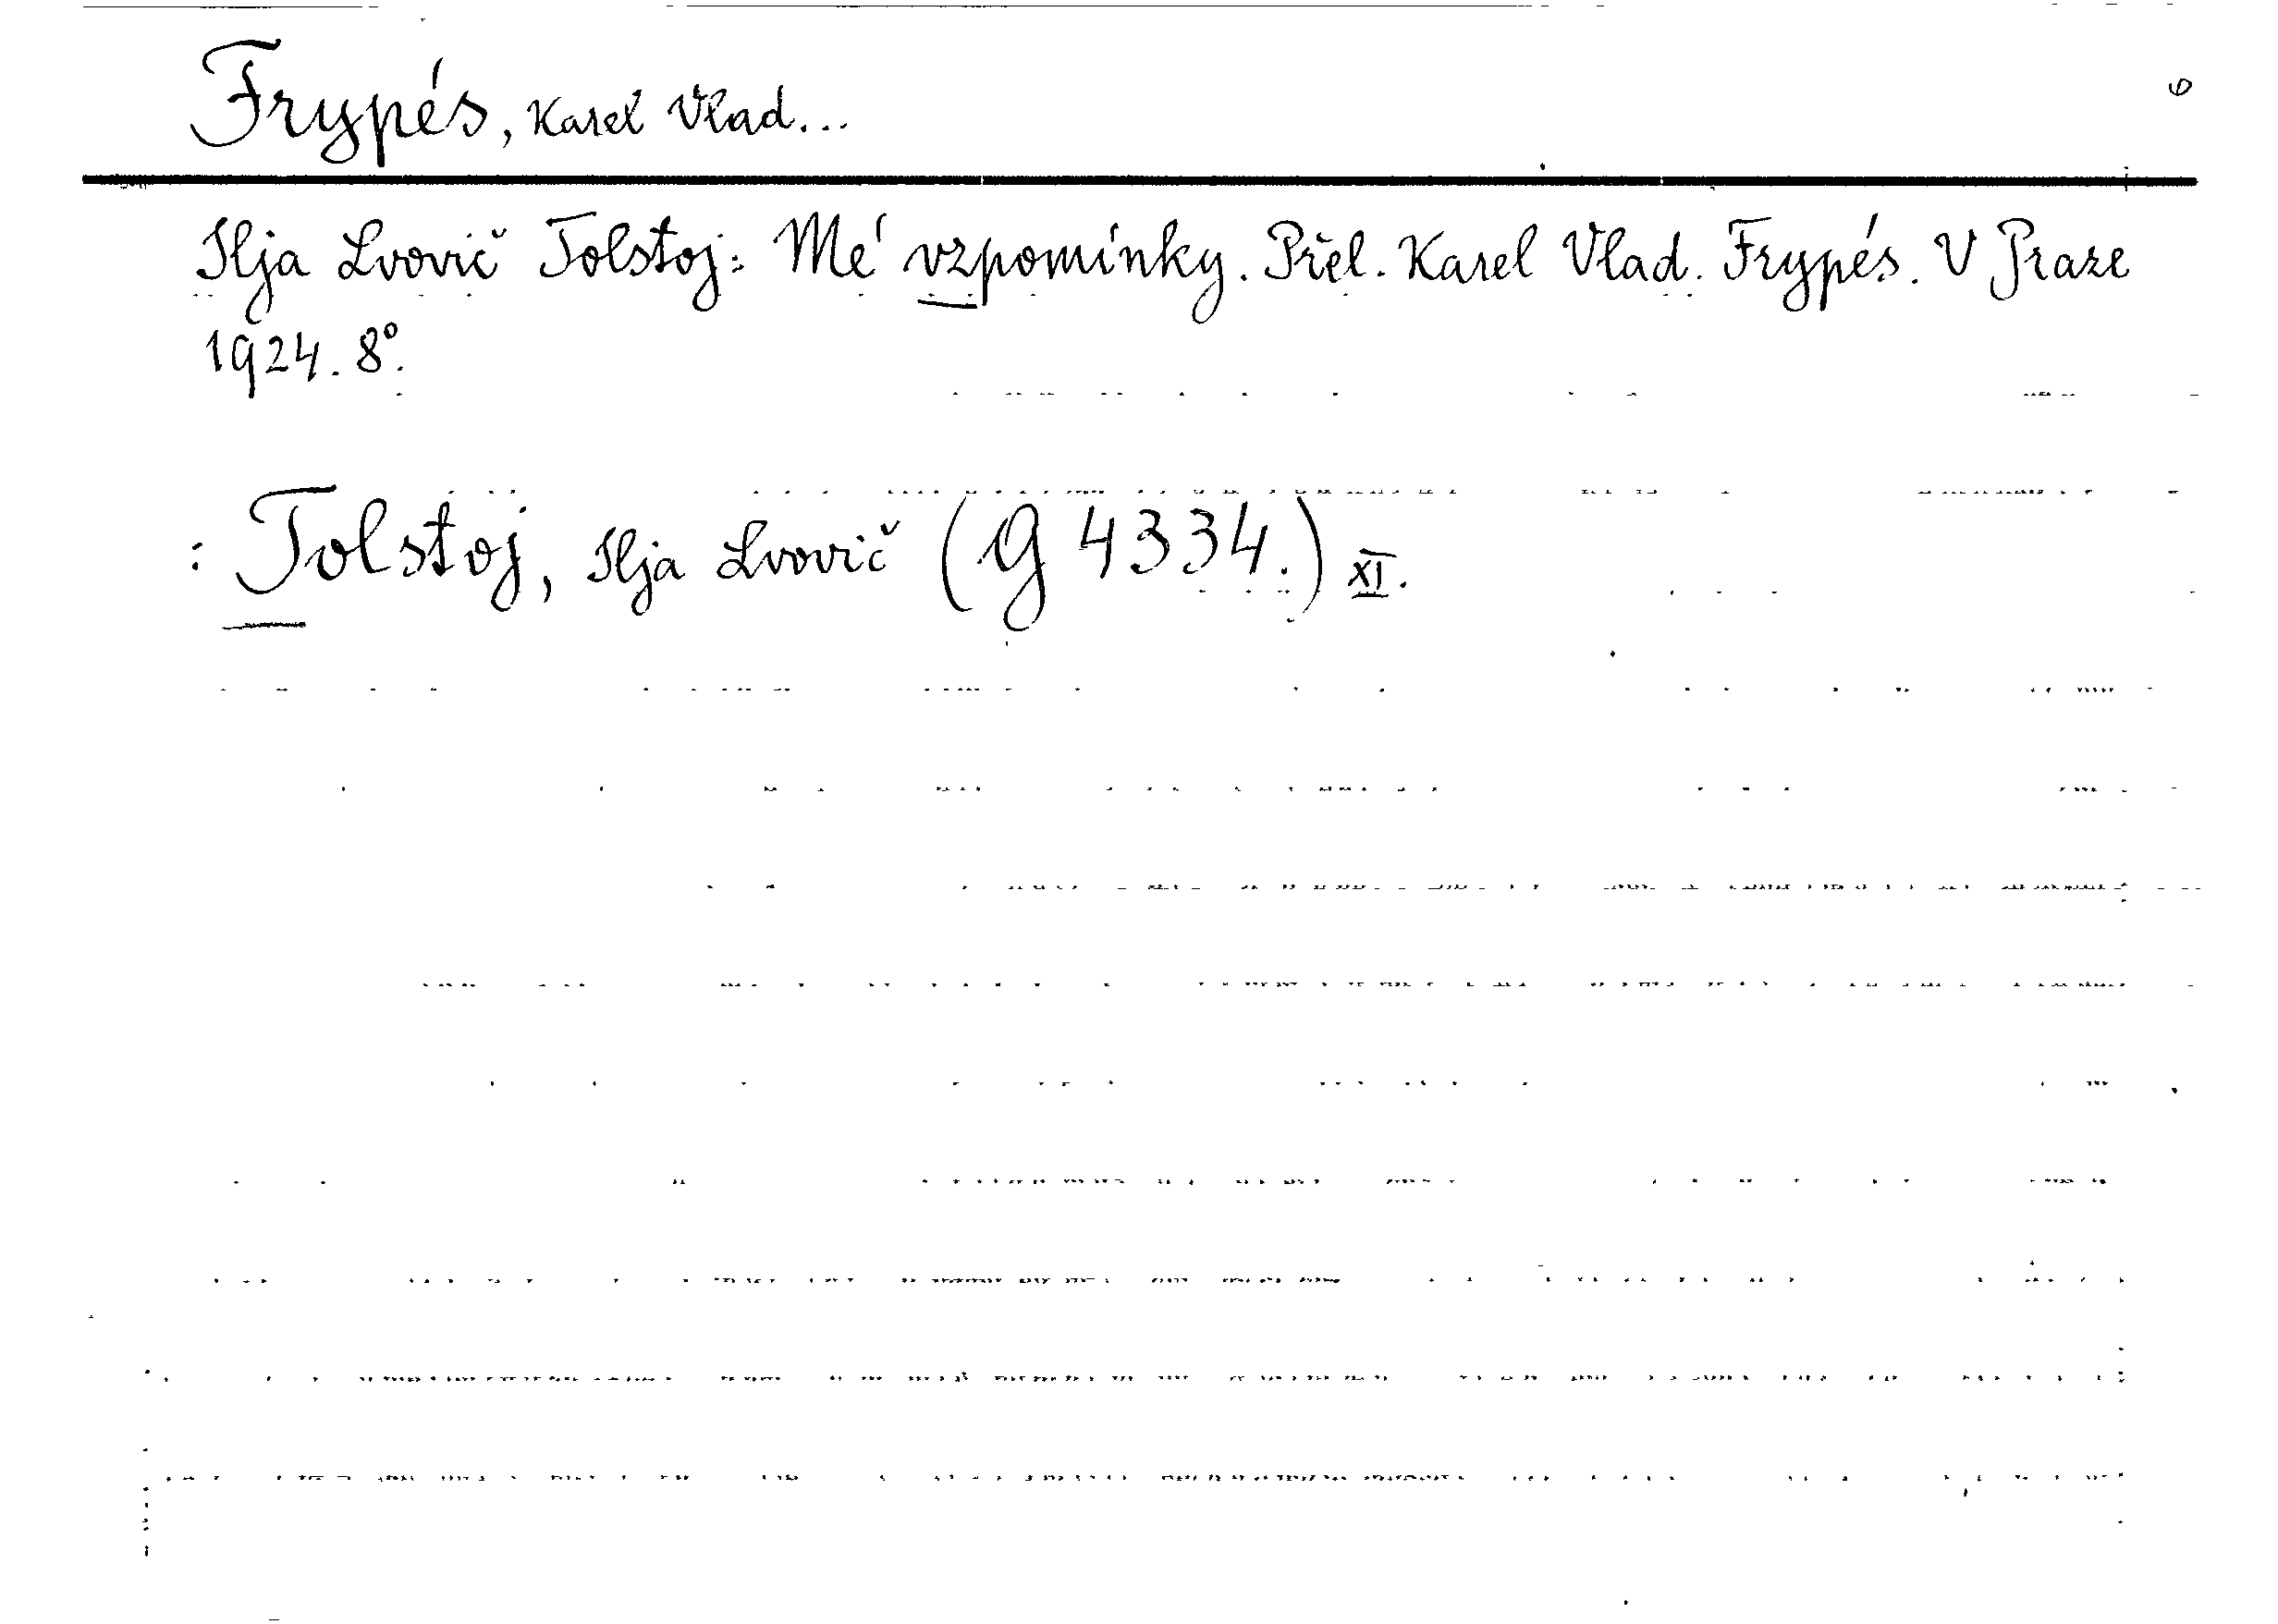 Frypés, Karel Vlad...
Ilja Lvovič Tolstoj: Mé vzpomínky. Přel. Karel Vlad. Frypés. V Praze
1924. 8°.
: Tolstoj, Ilja Lvovič (G 4334.) XI.